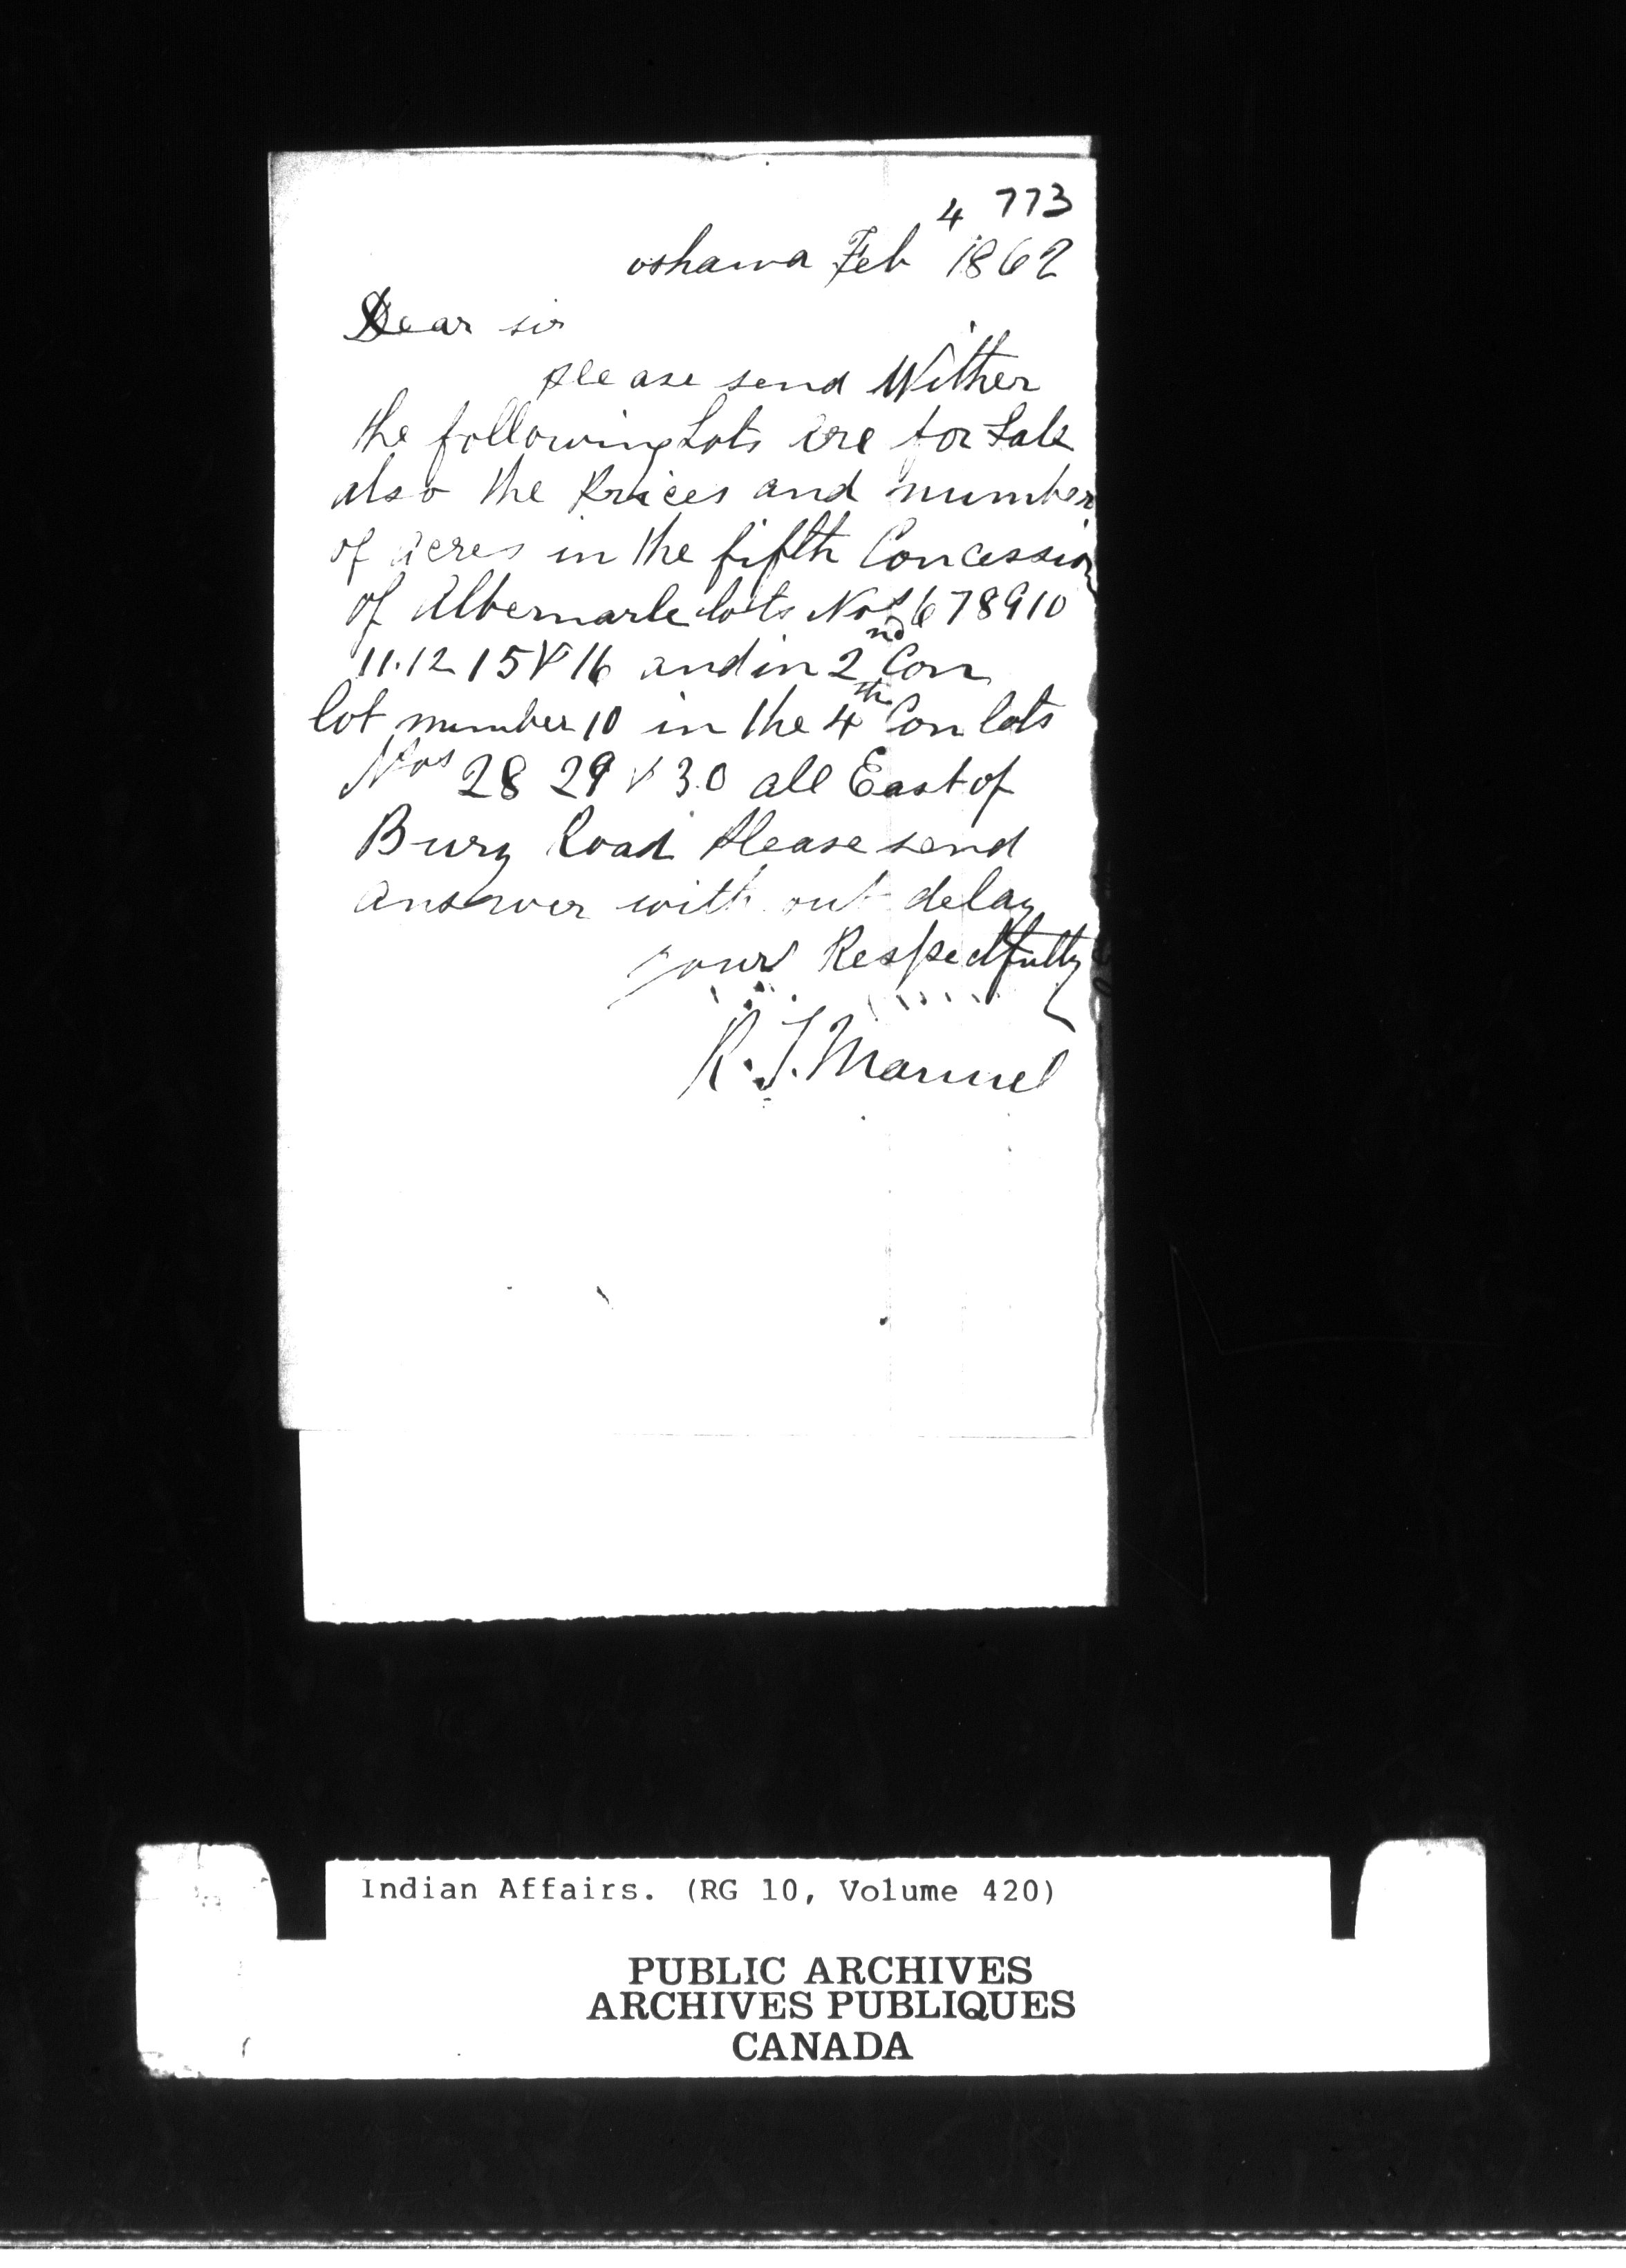 773
oshawa Feb 4 1862
Dear sir
please send Wither
the following Lots are for Sale
also the Prices and number
of acres in the fifth Concession
of Albemarle lots Nos 6 7 8 9 10
11.12 15 & 16 and in 2nd Con
lot number 10 in the 4th Con lots
Nos 28 29 & 30 all East of
Bury Road Please send
answer with out delay
yours Respectfully
R. J. Manuel
Indian Affairs. (RG 10, Volume 420)
PUBLIC ARCHIVES
ARCHIVES PUBLIQUES
CANADA